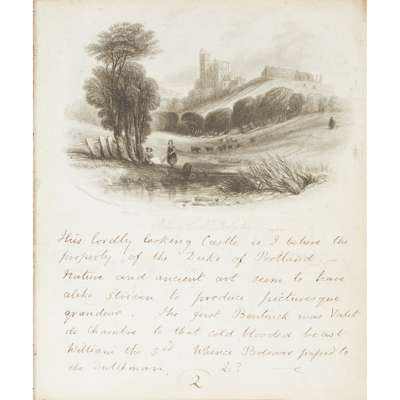 This lordly looking Castle is I believe the
property of the Duke of Portland —
Nature and ancient art seem to have
alike striven to produce picturesque
grandeur. The first Bentinck was Valet
de Chambre to that cold blooded beast
William the 3rd Whence Bolsover passed to
the Dutchman. L?
2